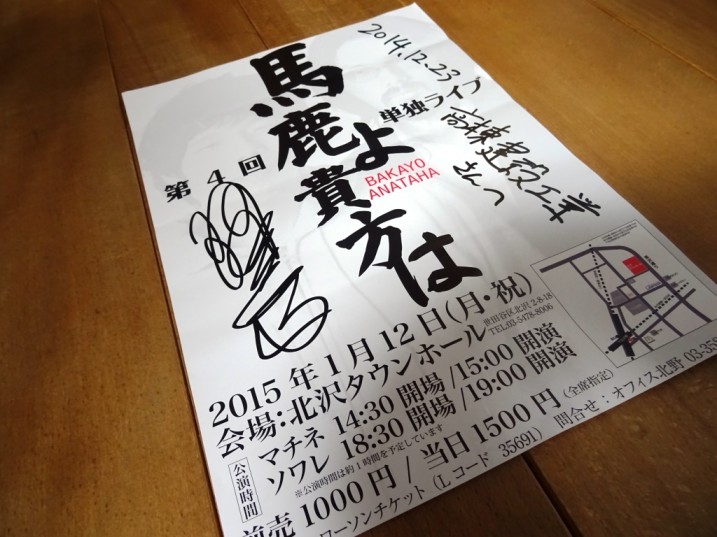 2014.12.23
高棟建設工業
さんへ
第4回
馬鹿よ貴方は
単独ライブ
BAKAYO
ANATAHA
2015年1月12日(月・祝)
会場:北沢タウンホール
世田谷区北沢2-8-18
TEL.03-5478-8006
マチネ 14:30 開場/15:00 開演
ソワレ 18:30 開場/19:00 開演
公演時間
※公演時間は約1時間を予定しています
前売1000円/当日1500円(全席指定)
ローソンチケット(Lコード 35691)
問合せ:オフィス北野 03-35